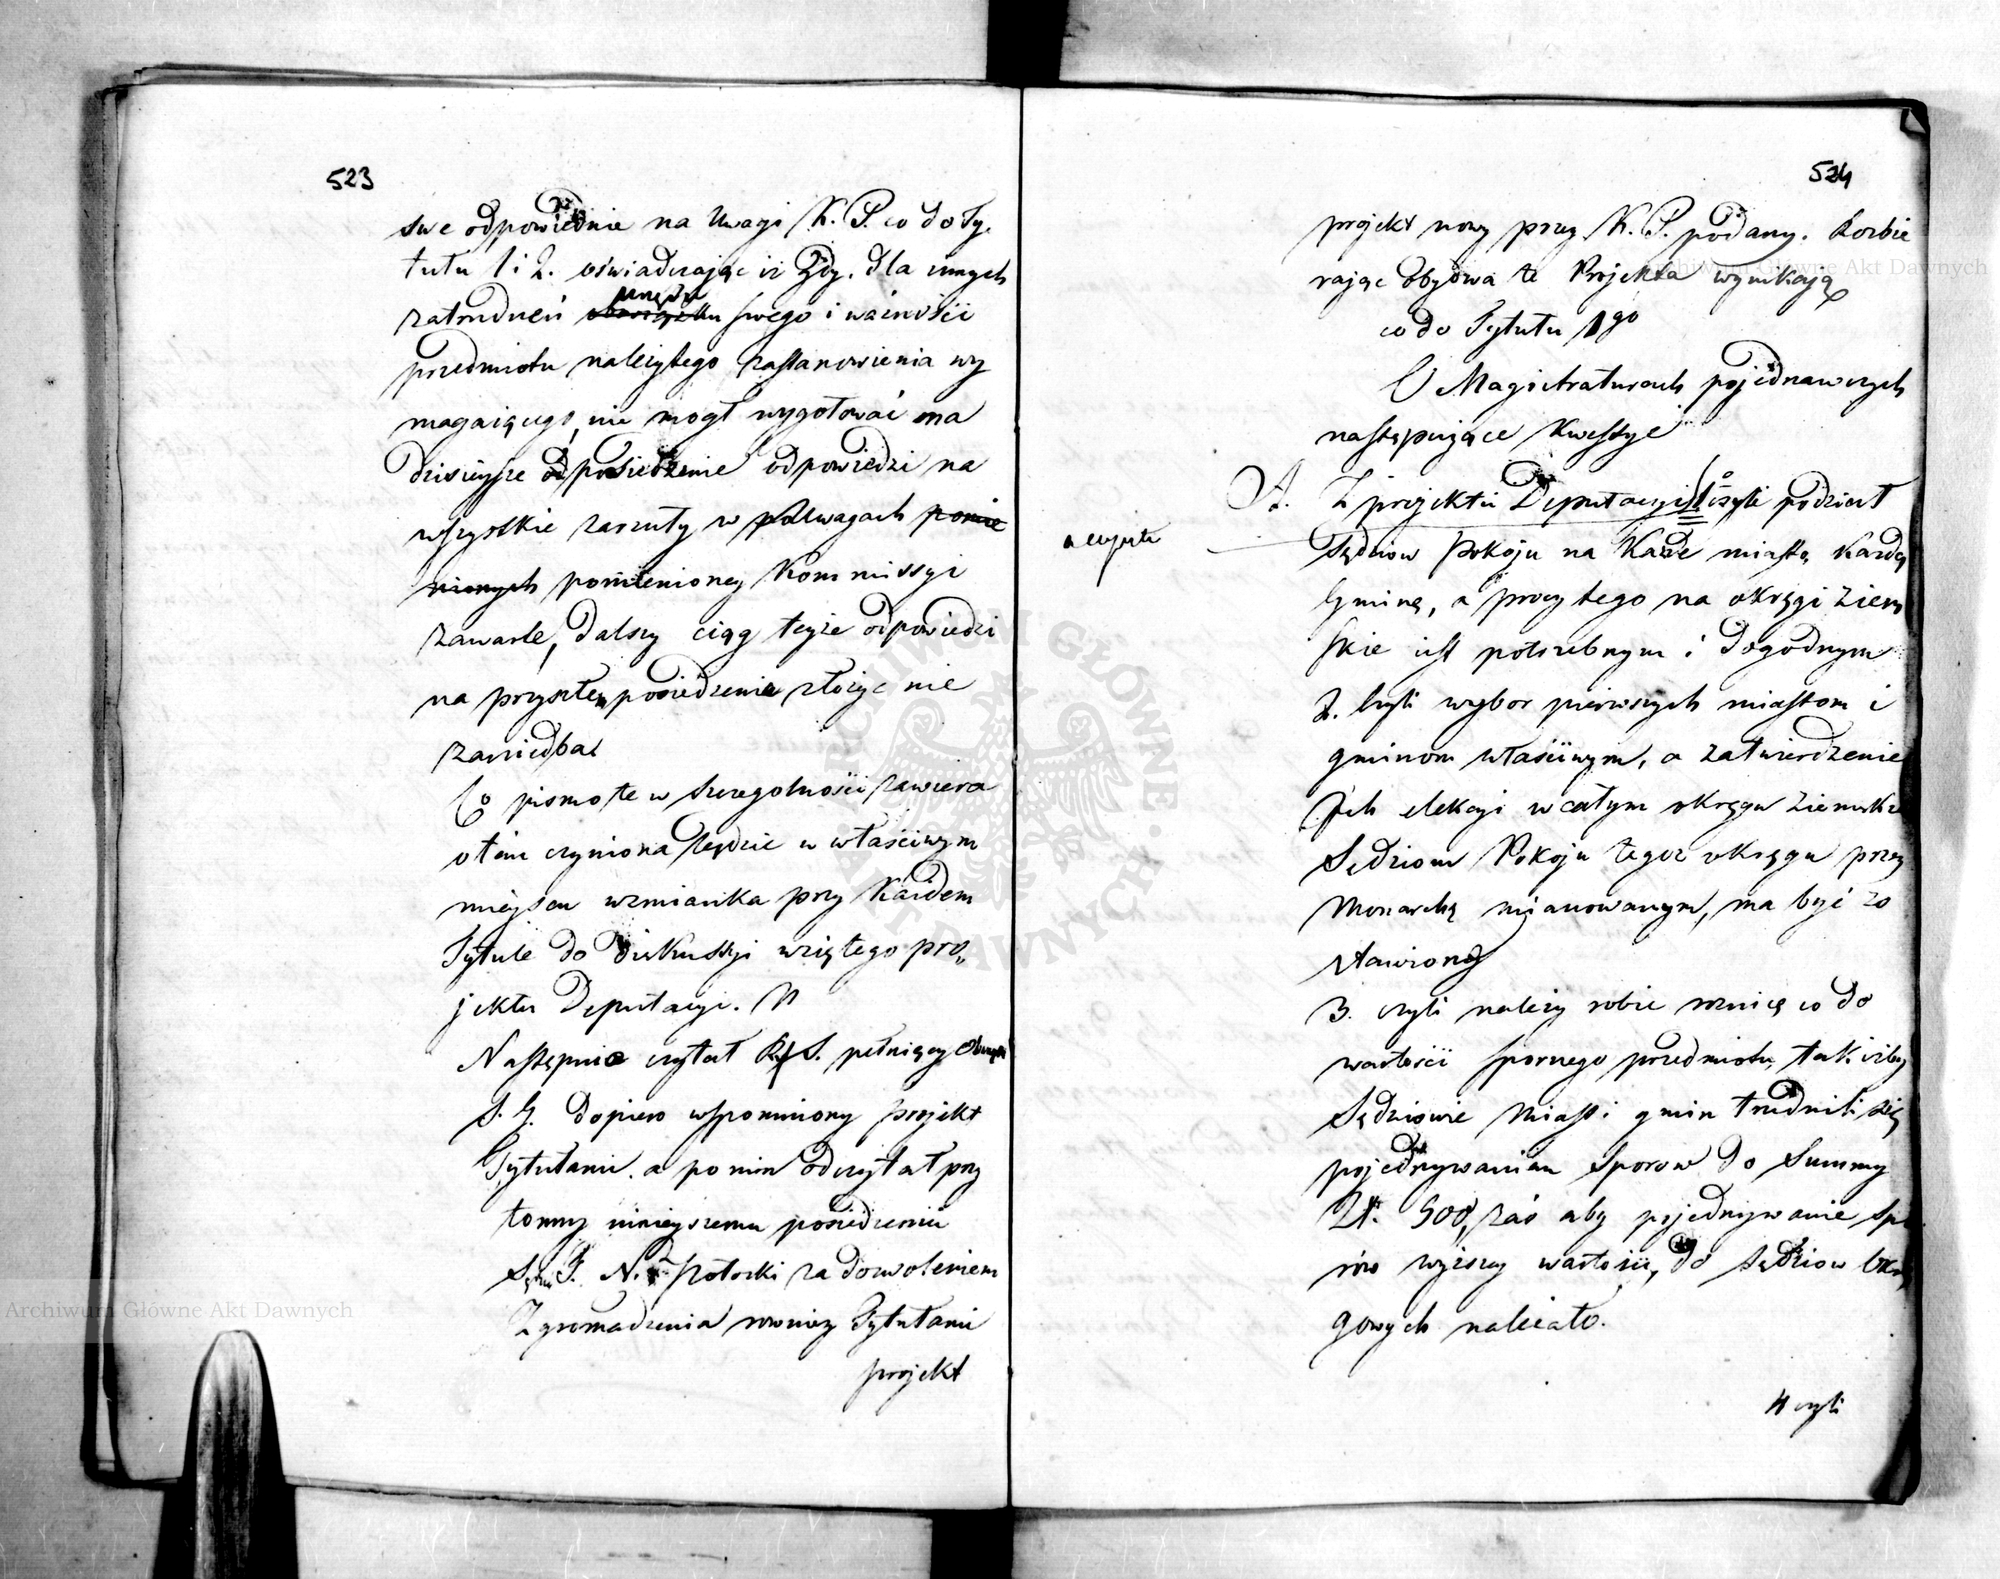 523
swe odpowiednie na Uwagi K. P. co do Ty.
tutu 1 i 2. oświadczając iż Gdy. dla innych
zatrudnień urzędu swego i ważności
przedmiotu należytego zastanowienia wy
magaiącego, nie mogł wygotować na
dzisieysze posiedzenie odpowiedzi na
wszystkie zarzuty w Uwagach pomie
nionych pomienioney Kommissyi
zawarte, dalszy ciąg teyże odpowiedzi
na przyszłem posiedzenie złożyć nie
zaniedba
Co pismo te w szczegolności zawiera
o tem czyniona będzie w właściwym
mieyscu wzmianka przy każdem
Tytule do diskussyi wziętego pro„
jektu Deputacyi.
Następnie czytał R. S. pełniący Obowiązki
S. G. dopiero wspomniony projekt
Tytułami. a po nim odczytał przy
tomny ninieyszemu posiedzeniu
P. N. Potocki za dozwoleniem
Zgromadzenia rownież Tytułami
projekt
524
projekt nowy przez K. P. podany. Rozbie
rając obydwa te Projekta wynikają
co do Tytułu 1go
O Magistraturach pojednawczych
następujące Kwestye
A. Z projektu Deputacyi 1o czyli podział
Sędziow Pokoju na Każde miasto, Każdą
Gminę, a procz tego na okręgi Ziem
skie iest potrzebnym i Dogodnym
2. Czyli wybor pierwszych miastom i
gminom właściwym, a zatwierdzenie
Ich elekcyi w całym okręgu Ziemskie
Sędziom Pokoju tegoż okręgu przez
Monarchę mianowanym, ma być zo
stawioną
3. czyli należy robić roznicę co do
wartości spornego przedmiotu, tak iżby
Sędziowie Miast i gmin trudnili się
pojednywaniem sporow do Summy
Zł. 500, zaś aby pojednywanie spo
row wyższey wartości, do Sędziow Okrę
gowych należało.
4 czyli